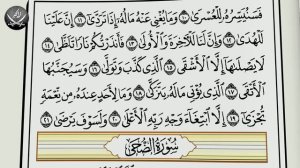 فَسَنُيَسِّرُهُ لِلْعُسْرَىٰ ١٠ وَمَا يُغْنِي عَنْهُ مَالُهُ إِذَا تَرَدَّىٰ ١١ إِنَّ عَلَيْنَا
لَلْهُدَىٰ ١٢ وَإِنَّ لَنَا لَلْآخِرَةَ وَالْأُولَىٰ ١٣ فَأَنذَرْتُكُمْ نَارًا تَلَظَّىٰ ١٤
لَا يَصْلَاهَا إِلَّا الْأَشْقَى ١٥ الَّذِي كَذَّبَ وَتَوَلَّىٰ ١٦ وَسَيُجَنَّبُهَا
الْأَتْقَى ١٧ الَّذِي يُؤْتِي مَالَهُ يَتَزَكَّىٰ ١٨ وَمَا لِأَحَدٍ عِندَهُ مِن نِّعْمَةٍ
تُجْزَىٰ ١٩ إِلَّا ابْتِغَاءَ وَجْهِ رَبِّهِ الْأَعْلَىٰ ٢٠ وَلَسَوْفَ يَرْضَىٰ ٢١
سُورَةُ الضُّحَى